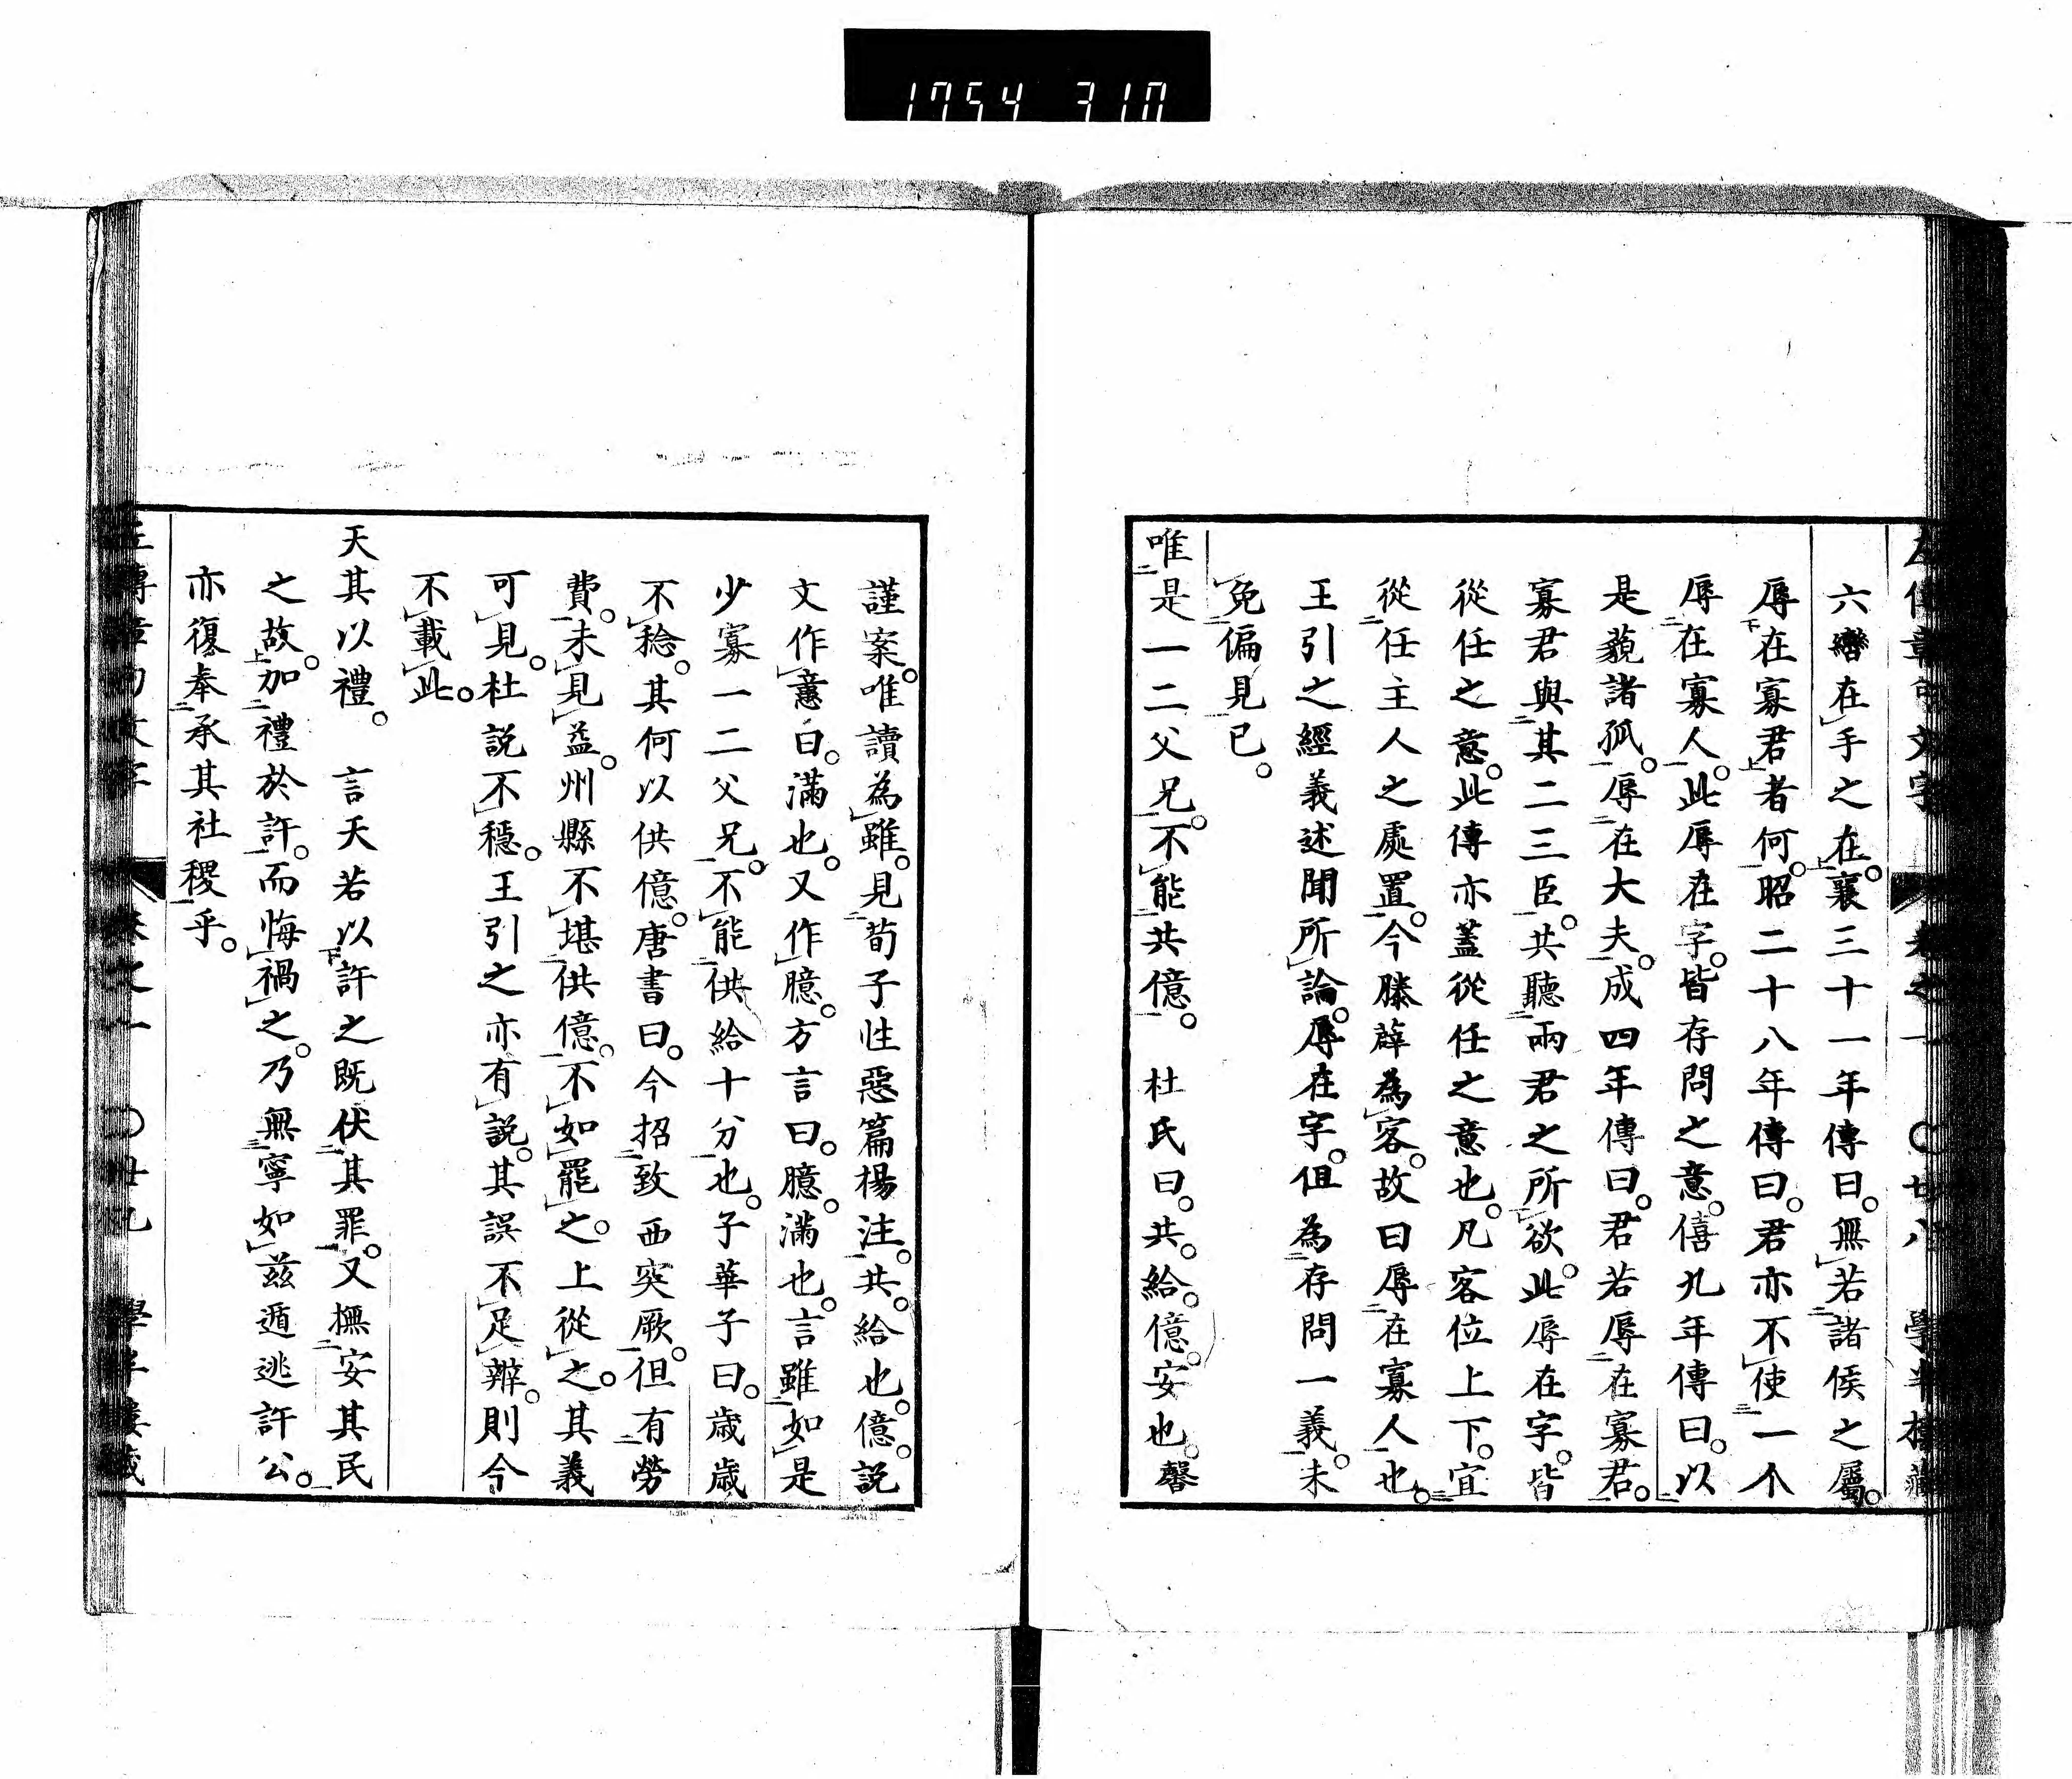 1754 310
左傳章句文字 卷之一 〇廿八 學半樓藏
六轡在手之在。襄三十一年傳曰。無若諸侯之屬。
辱在寡君者何。昭二十八年傳曰。君亦不使一个
辱在寡人。此辱在字。皆存問之意。僖九年傳曰。以
是藐諸孤。辱在大夫。成四年傳曰。君若辱在寡君。
寡君與其二三臣。共聽兩君之所欲。此辱在字。皆
從任之意。此傳亦蓋從任之意也。凡客位上下。宜
從任主人之處置。今滕薛為客。故曰辱在寡人也。
王引之經義述聞所論。辱在字。但為存問一義。未
免偏見已。
唯是一二父兄。不能共億。 杜氏曰。共。給。億。安也。馨
謹案。唯讀為雖。見荀子性惡篇楊注。共。給也。億。説
文作意曰。滿也。又作臆。方言曰。臆。滿也。言雖如是
少寡一二父兄。不能供給十分也。子華子曰。歳歳
不稔。其何以供億。唐書曰。今招致西突厥。但有勞
費。未見益。州縣不堪供億。不如罷之。上從之。其義
可見。杜説不穩。王引之亦有説。其誤不足辨。則今
不載此。
天其以禮。 言天若以許之既伏其罪。又撫安其民
之故。加禮於許。而悔禍之。乃無寧如茲遁逃許公。
亦復奉承其社稷乎。
左傳章句文字 卷之一 〇廿九 學半樓藏